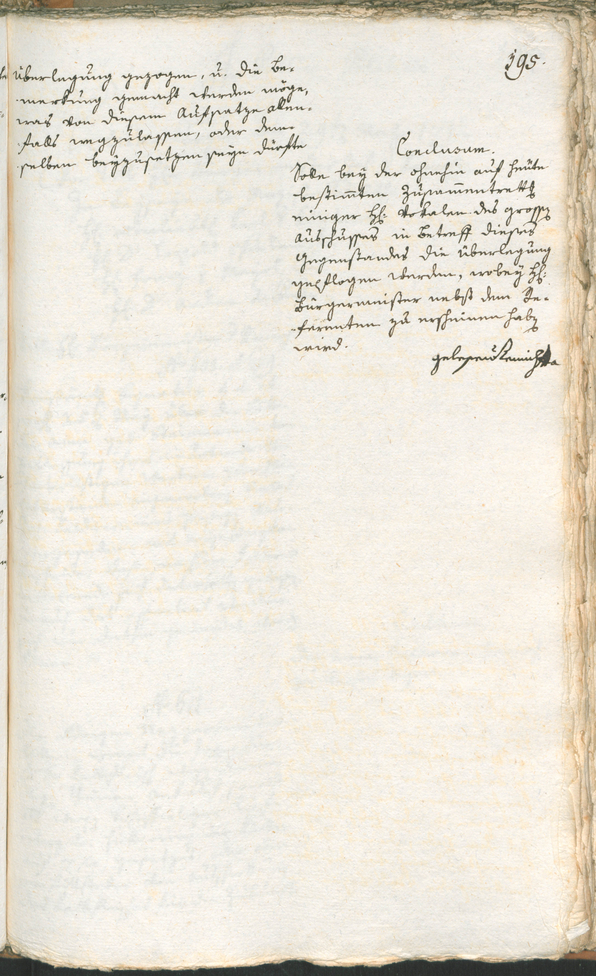 195.
Überlegung gezogen, u. die Be-
merkung gemacht werden möge,
was von diesem Aufsatze allen-
falls wegzulassen, oder dem-
selben beyzusetzen seyn dürfte
Conclusum.
Solle bey der ohnehin auf heute
bestimmten Zusammentrettg
einiger HH: Vokalen des grossen
Ausschusses in Betreff dieses
Gegenstandes die Überlegung
gepflogen werden, wobey Hr:
Bürgermeister nebst dem Re-
ferenten zu erscheinen haben
wird.